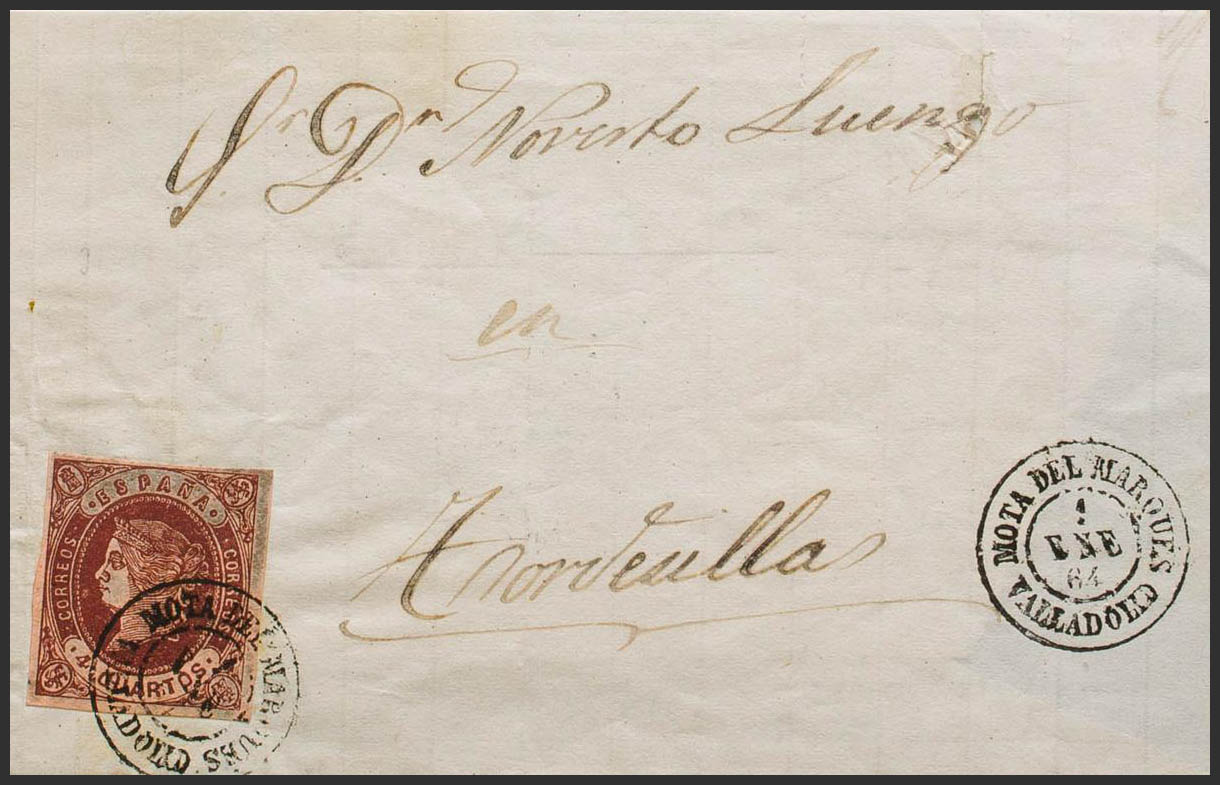 Sr. Dn. Noverto Luengo
en
Tordesilla
ESPAÑA
CORREOS.
CORREOS.
4 CUARTOS.
MOTA DEL MARQUÉS
VALLADOLID
MOTA DEL MARQUÉS
1
ENE
64
VALLADOLID